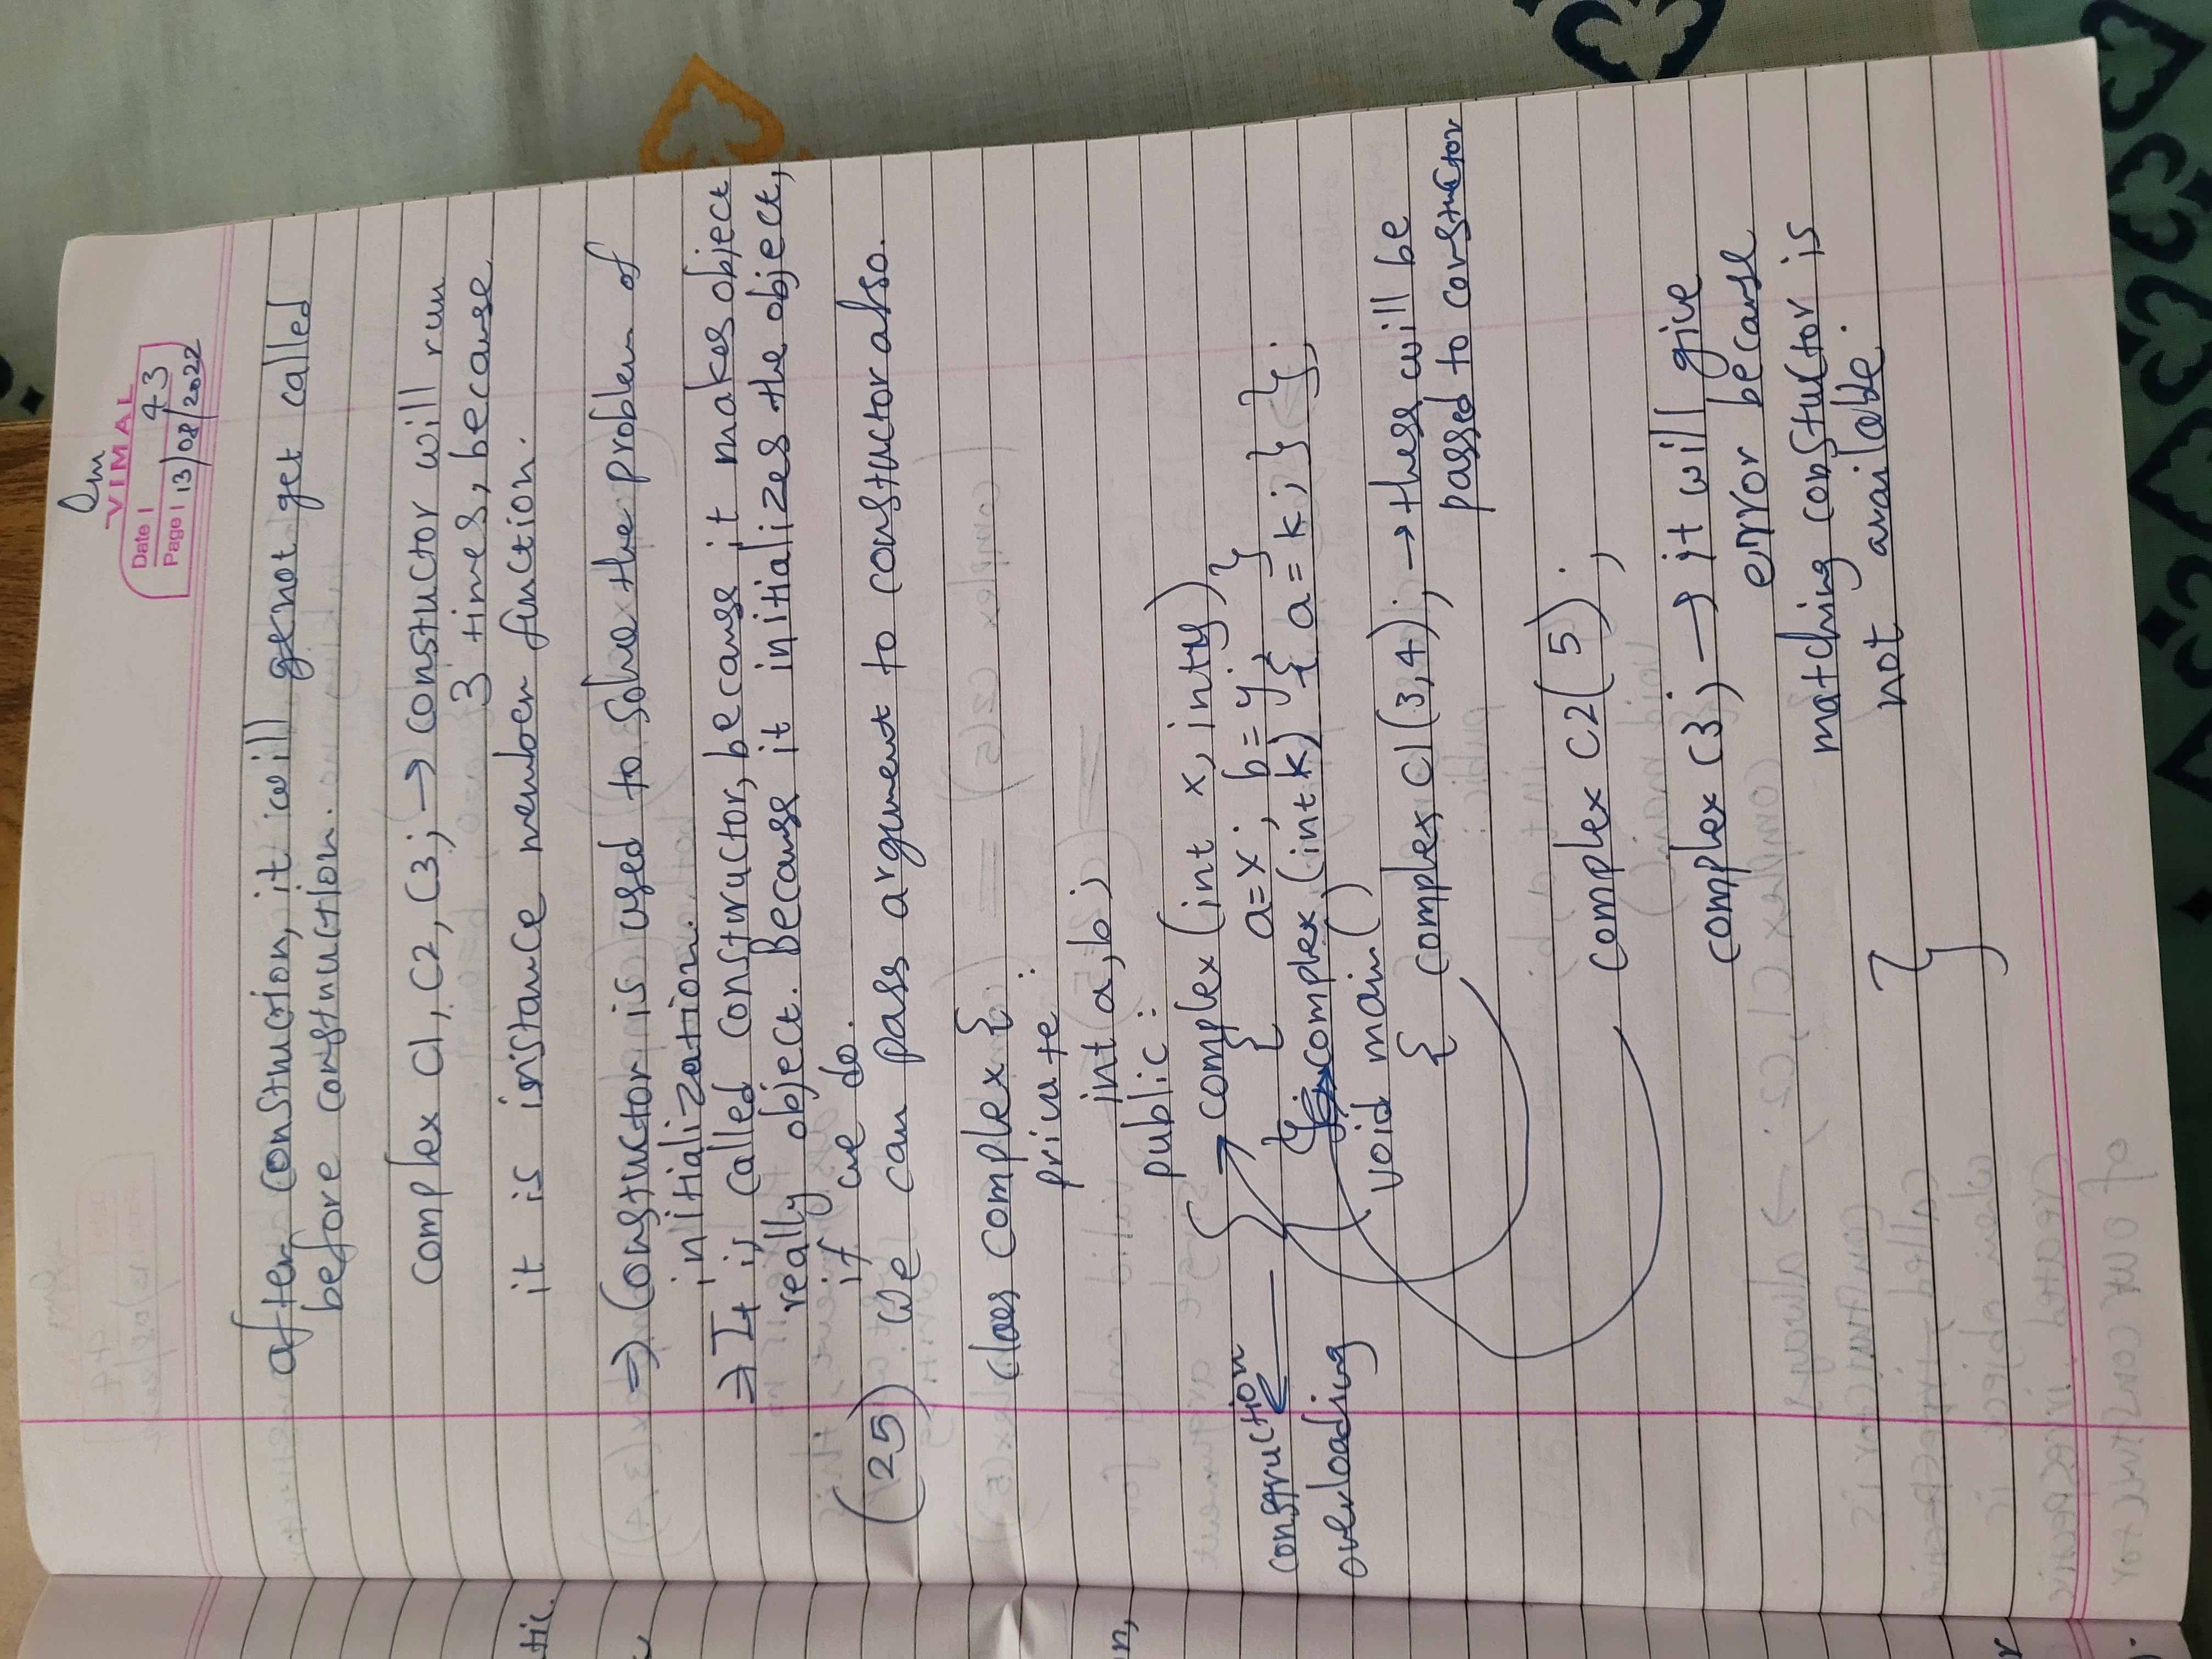 Om
VIMAL
Date | 43
Page | 13/08/2022
after construcion, it will not get called
before construction.
complex C1, C2, C3; → constuctor will run
3 times, because
it is instance member function.
⇒ Constuctor is used to solve the problem of
initialization.
⇒ It is called constructor, because it makes object
really object. Because it initializes the object,
if we do.
(25) We can pass argument to constuctor also.
class complex {
private :
int a, b;
public :
complex (int x, int y)
{ a=x; b=y; }
complex (int k) { a = k; } };
construction
overloading
void main()
{ complex C1(3,4); → these will be
passed to constructor
complex C2(5);
complex C3; → it will give
error because
matching constuctor is
not available.
}
tic.
n,
r